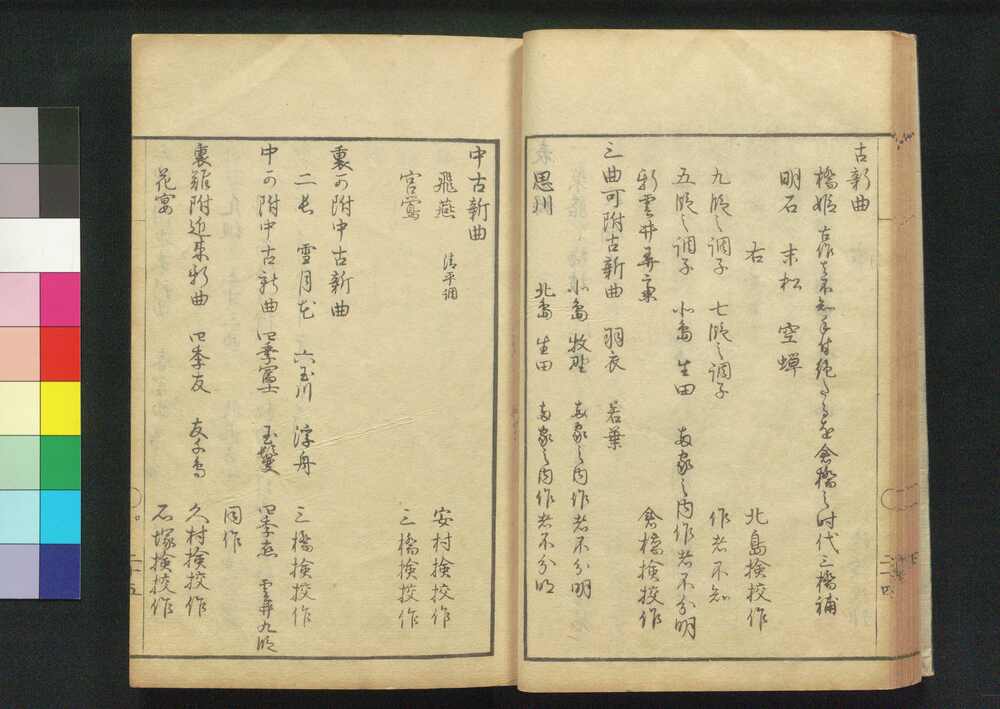 古新曲
橋姫 古作 倉橋之時代三橋補
明石 末松 空蝉
右 北島検校作
九段之調子 七段之調子 作者不知
五段之調子 北島 生田 両家之内作者不分明
新雲井弄斎 倉橋検校作
三曲可附古新曲 羽衣 若葉
小島 牧野 両家之内作者不分明
思川 北島 生田 両家之内作者不分明
中古新曲
飛燕 清平調 安村検校作
宮鶯 三橋検校作
裏可附中古新曲
雪月花 六玉川 浮舟 三橋検校作
中可附中古新曲 四季富士 玉鬘 四季恋 雲井九段
同作
裏雖附近来新曲 四季友 友千鳥 久村検校作
花宴 石塚検校作